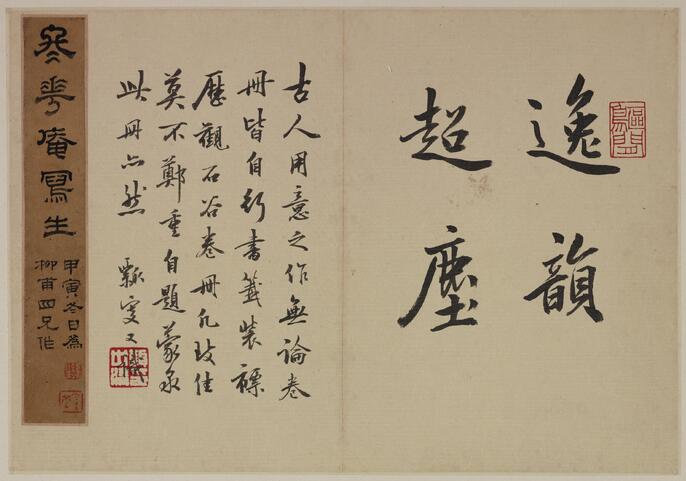 逸韻
超塵
古人用意之作無論卷
冊皆自行書籤裝褾
歷觀石谷卷冊凡致佳
莫不鄭重自題蒙泉
此冊亦然 瓢叟又識
冬花庵寫生
甲寅冬日為
柳甫四兄作